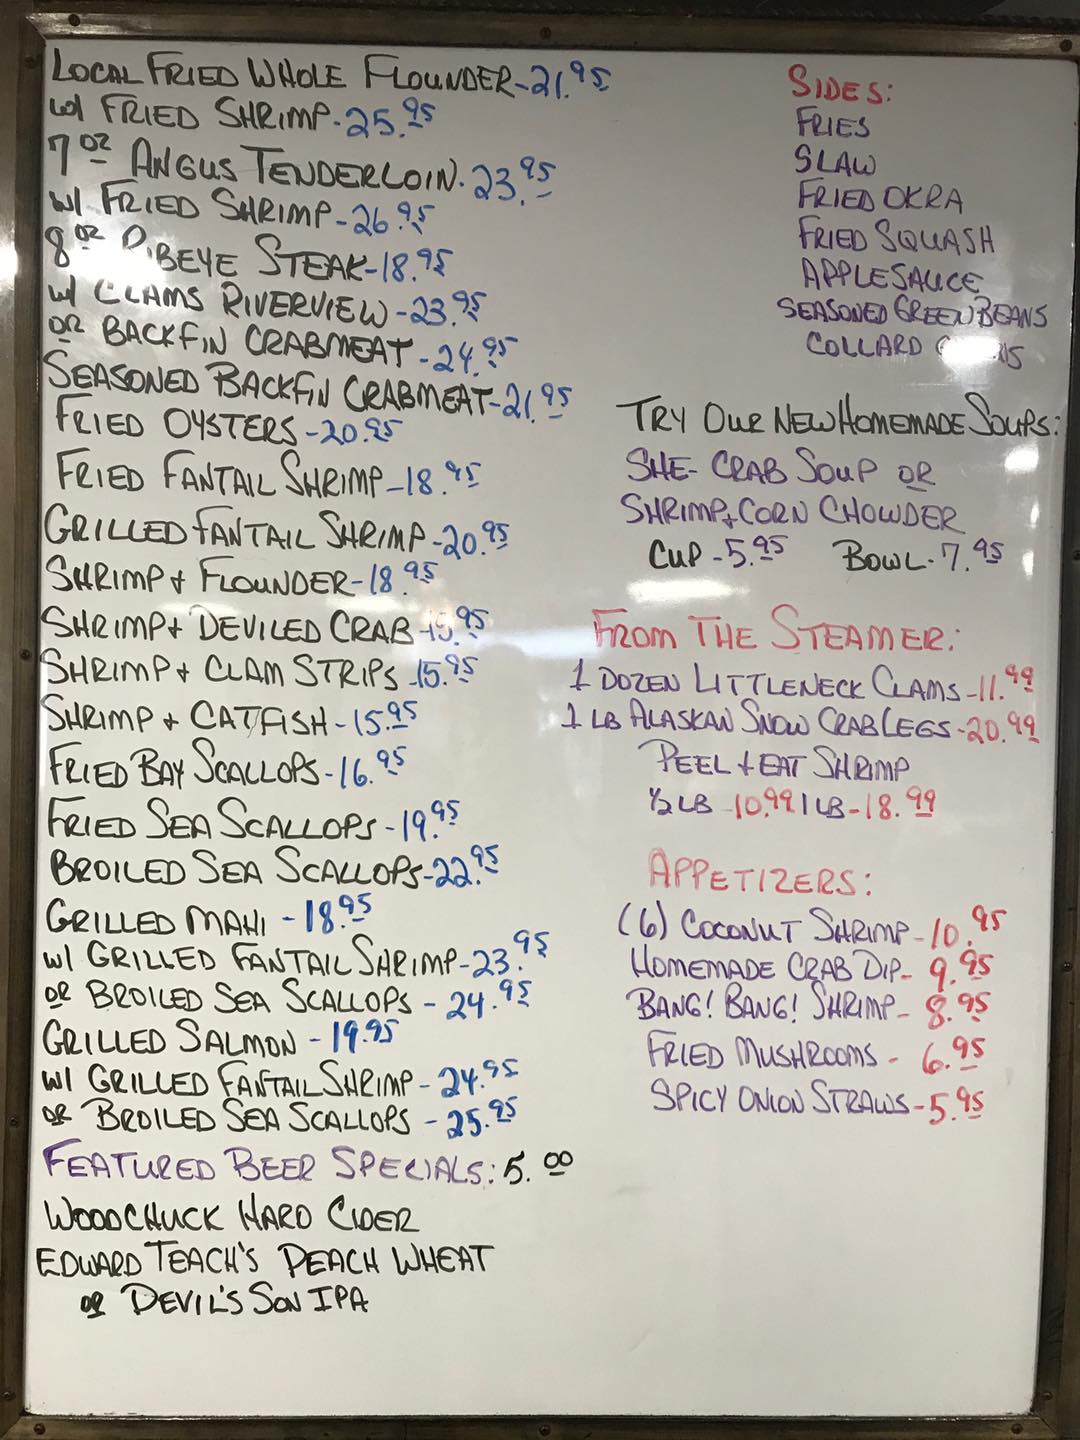 LOCAL FRIED WHOLE FLOUNDER-21.95
w/ FRIED SHRIMP-25.95
7 oz ANGUS TENDERLOIN-23.95
w/ FRIED SHRIMP-26.95
8 oz RIBEYE STEAK-18.95
w/ CLAMS RIVERVIEW-23.95
OR BACKFIN CRABMEAT-24.95
SEASONED BACKFIN CRABMEAT-21.95
FRIED OYSTERS-20.95
FRIED FANTAIL SHRIMP-18.95
GRILLED FANTAIL SHRIMP-20.95
SHRIMP + FLOUNDER-18.95
SHRIMP + DEVILED CRAB-15.95
SHRIMP + CLAM STRIPS-15.95
SHRIMP + CATFISH-15.95
FRIED BAY SCALLOPS-16.95
FRIED SEA SCALLOPS-19.95
BROILED SEA SCALLOPS-22.95
GRILLED MAHI-18.95
w/ GRILLED FANTAIL SHRIMP-23.95
OR BROILED SEA SCALLOPS-24.95
GRILLED SALMON-19.95
w/ GRILLED FANTAIL SHRIMP-24.95
OR BROILED SEA SCALLOPS-25.95
FEATURED BEER SPECIALS: 5.00
WOODCHUCK HARD CIDER
EDWARD TEACH'S PEACH WHEAT
OR DEVIL'S SON IPA
SIDES:
FRIES
SLAW
FRIED OKRA
FRIED SQUASH
APPLESAUCE
SEASONED GREEN BEANS
COLLARD
TRY OUR NEW HOMEMADE SOUPS:
SHE-CRAB SOUP OR
SHRIMP + CORN CHOWDER
CUP-5.95 BOWL-7.95
FROM THE STEAMER:
1 DOZEN LITTLENECK CLAMS-11.99
1 LB ALASKAN SNOW CRAB LEGS-20.99
PEEL + EAT SHRIMP
1/2 LB-10.99 1 LB-18.99
APPETIZERS:
(6) COCONUT SHRIMP-10.95
HOMEMADE CRAB DIP-9.95
BANG! BANG! SHRIMP-8.95
FRIED MUSHROOMS-6.95
SPICY ONION STRAWS-5.95